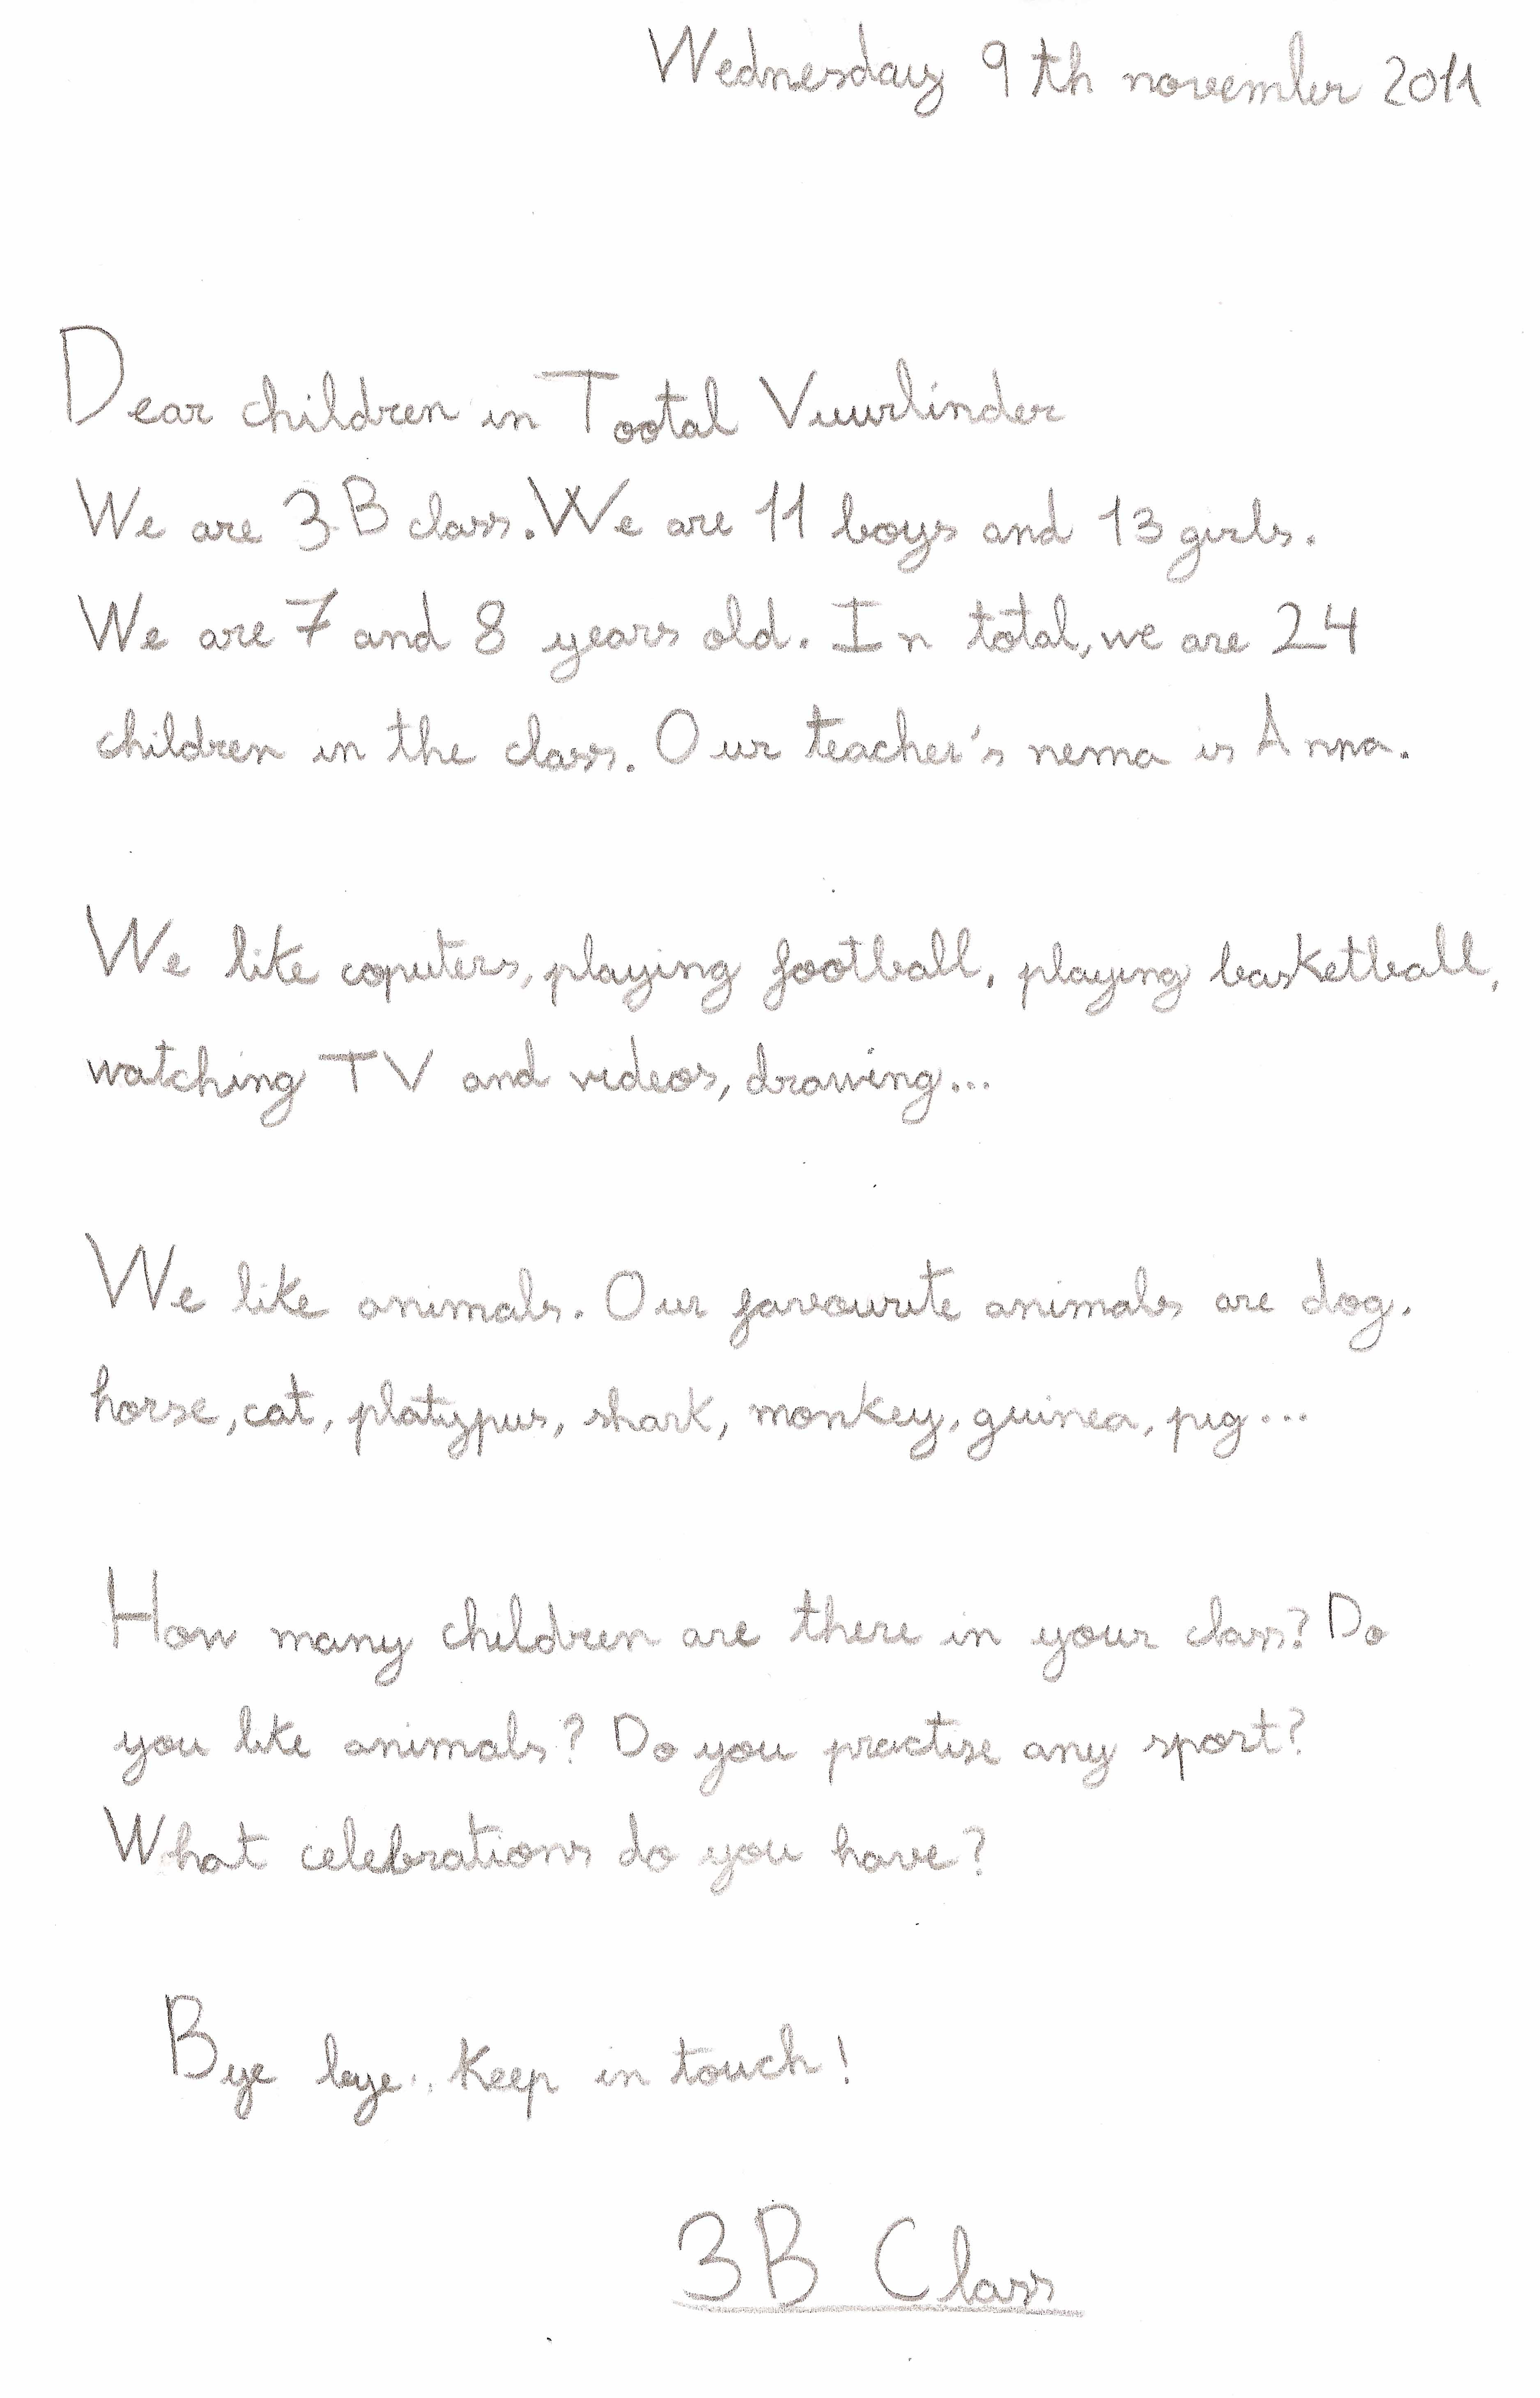 Wednesday 9th november 2011
Dear children in Tootal Vuurlinder
We are 3.B class. We are 11 boys and 13 girls.
We are 7 and 8 years old. In total, we are 24
children in the class. Our teacher's nema is Anna.
We like coputers, playing football, playing basketball,
watching TV and videos, drawing...
We like animals. Our favourite animals are dog,
horse, cat, platypus, shark, monkey, guinea, pig...
How many children are there in your class? Do
you like animals? Do you practise any sport?
What celebrations do you have?
Bye bye.. Keep in touch!
3B Class